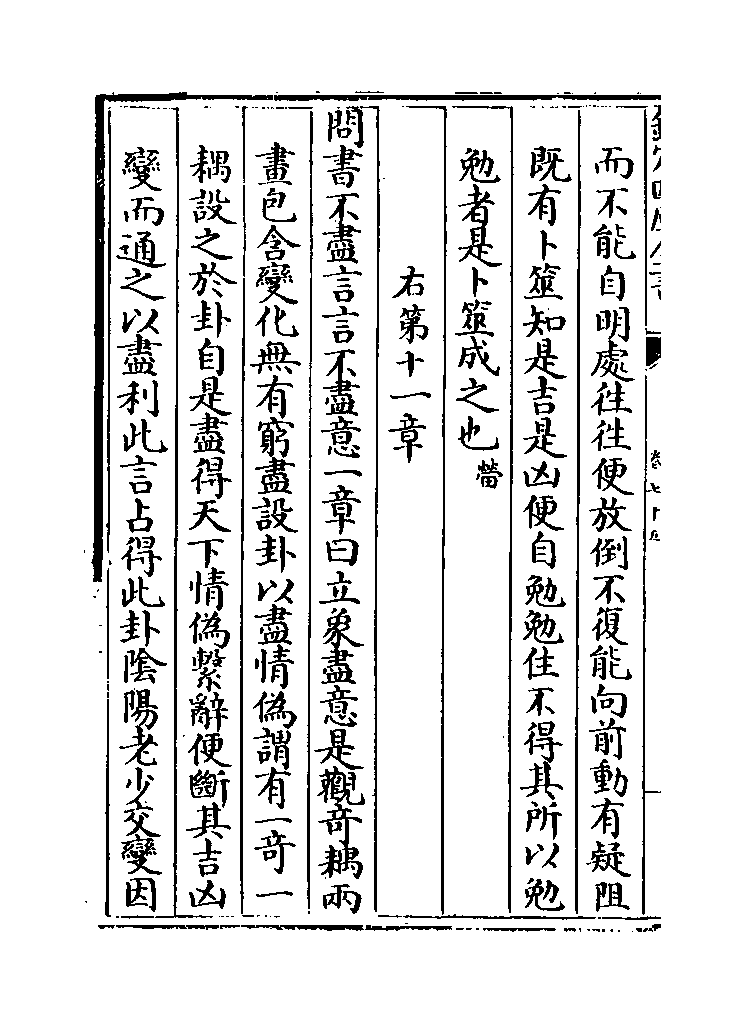 而不能自明處徃徃便放倒不復能向前動有疑阻
既有卜筮知是吉是凶便自勉勉住不得其所以勉
勉者是卜筮成之也㽦
右第十一章
問書不盡言言不盡意一章曰立象盡意是觀奇耦兩
畫包含變化無有窮盡設卦以盡情偽謂有一奇一
耦設之於卦自是盡得天下情偽繫辭便斷其吉凶
變而通之以盡利此言占得此卦陰陽老少交變因